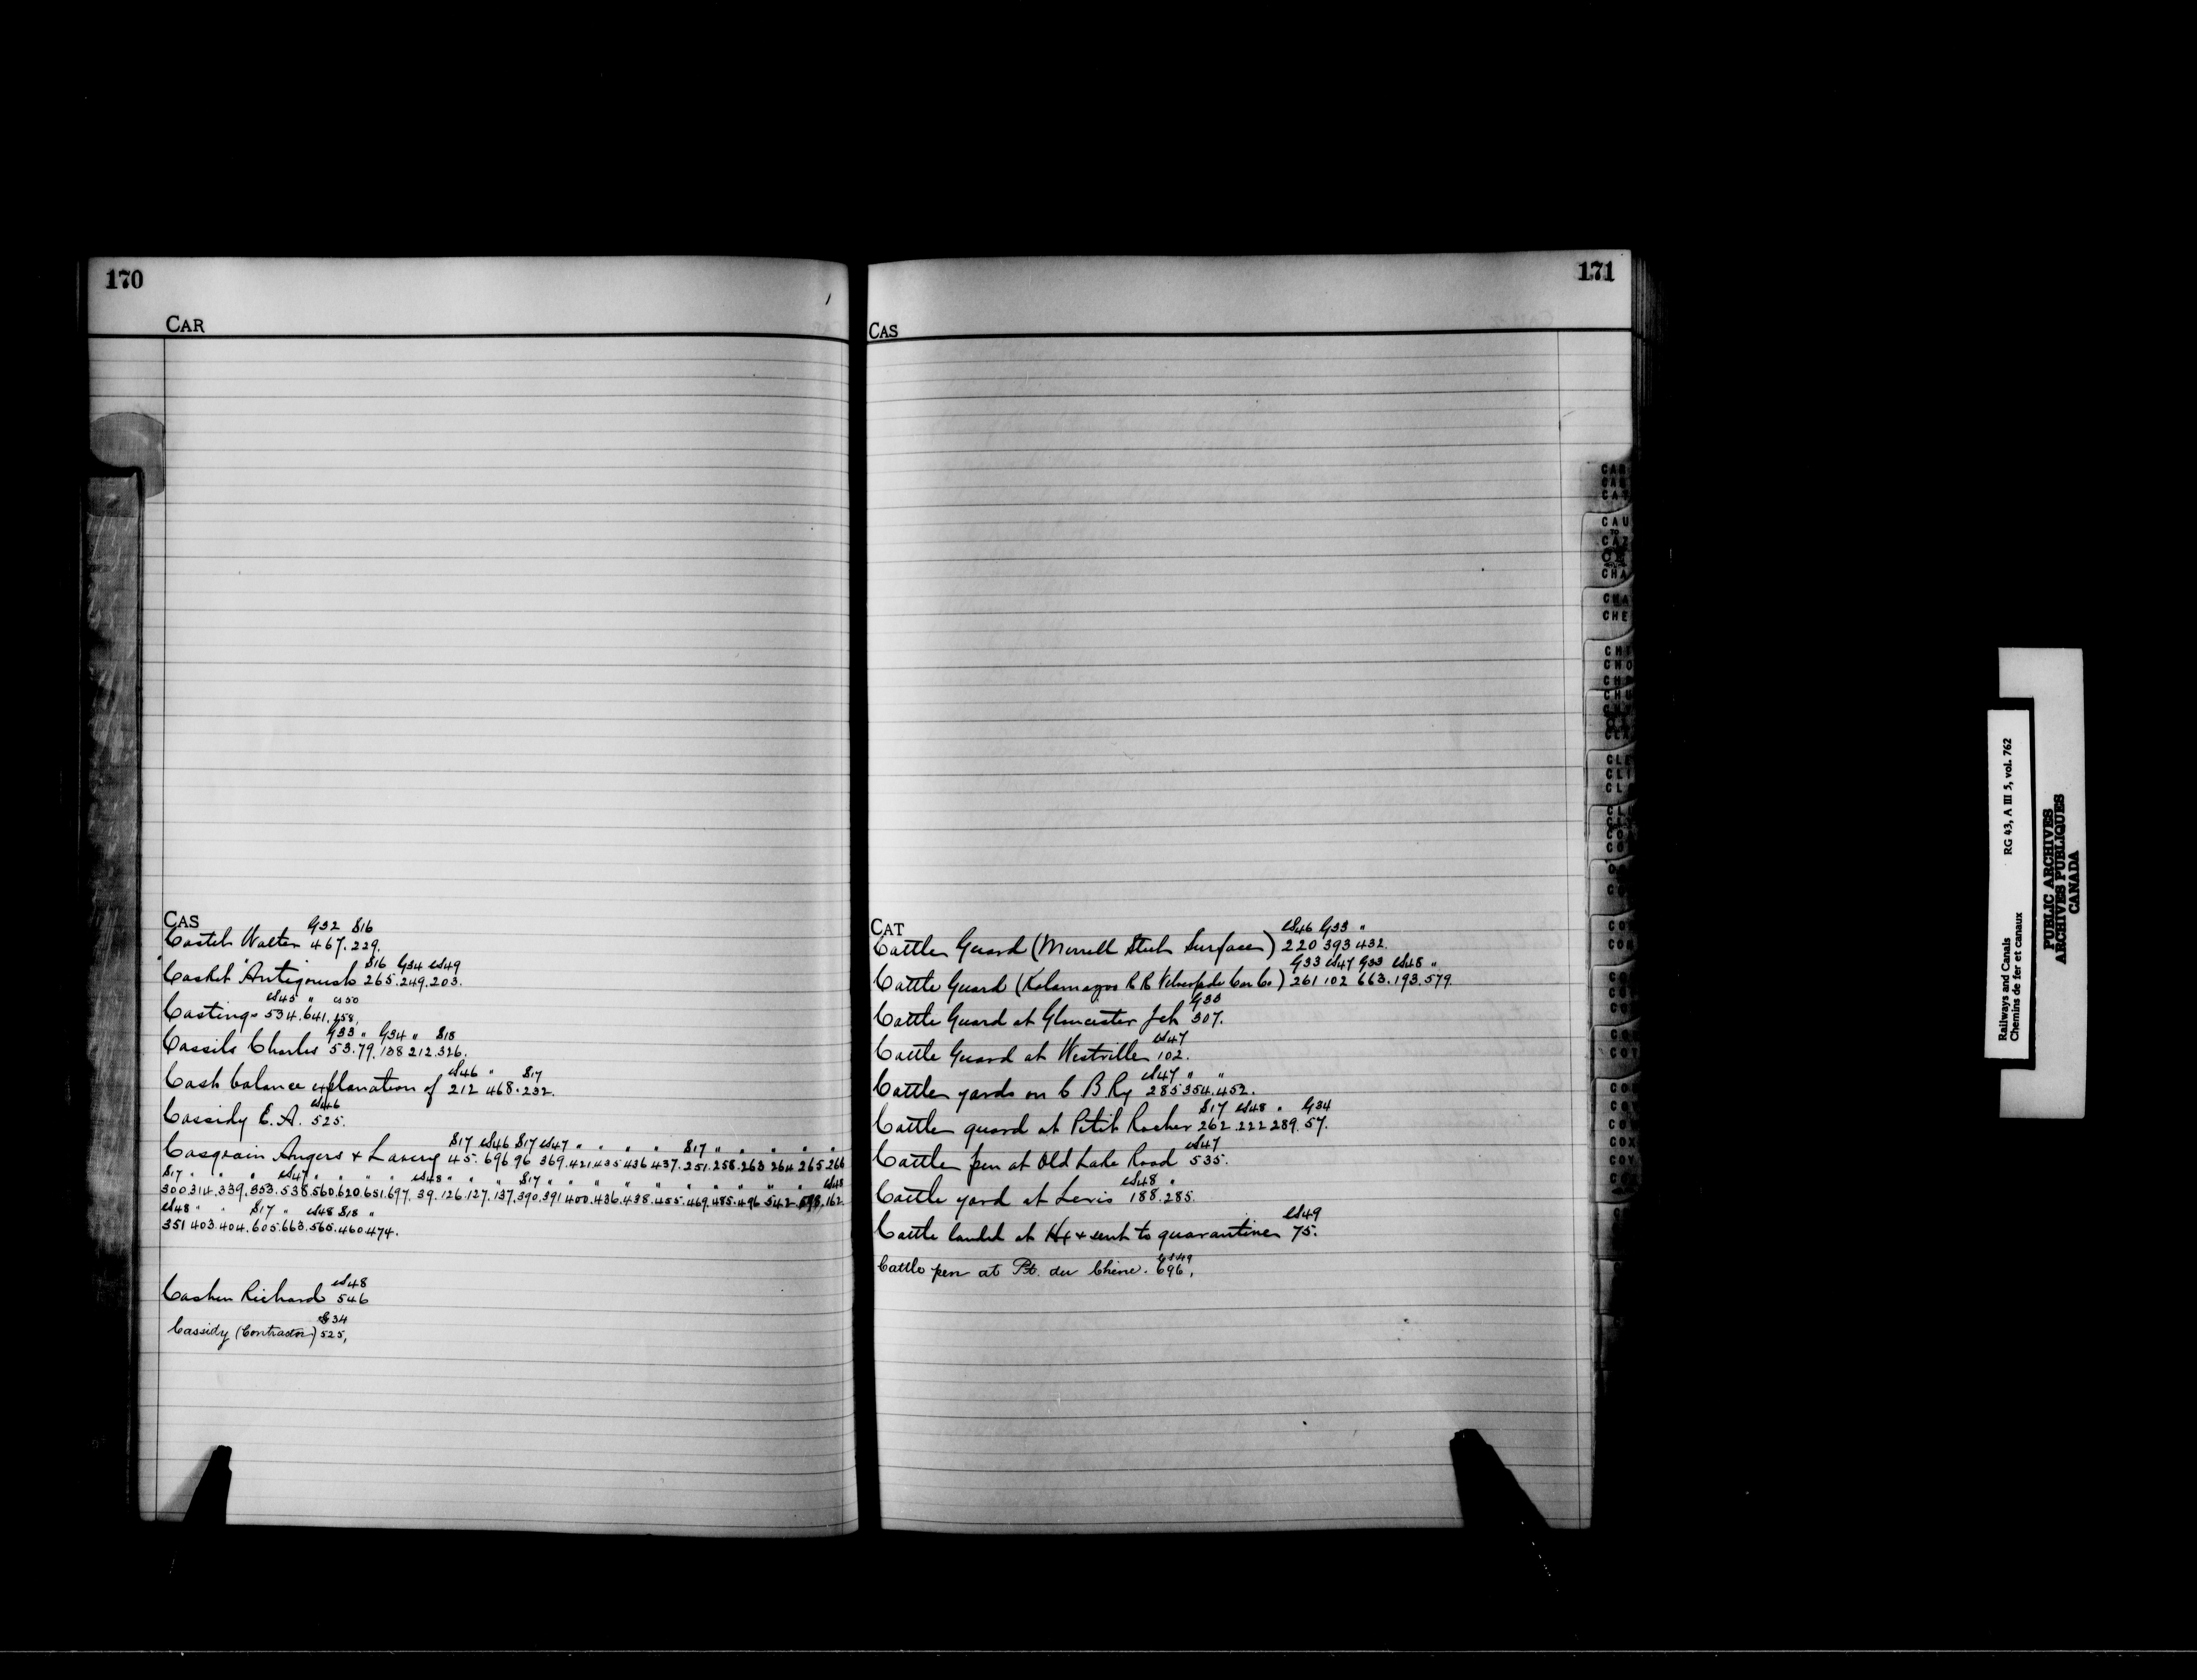 170
CAR
CAS
G32 S16
Castel Walter 467.229.
S16 G34 cS49
"Casket" Antigonish 265.249.203.
cS45 " cS50
Castings 534.641.258,
G33 " G34 " S18
Cassils Charles 53.79.138 212.326.
cS46 " S17
Cash balance explanation of 212 468.232.
cS46
Cassidy E. A. 525.
S17 cS46 S17 cS47 " " " " S17 " " " " "
Casgrain Angers & Lavery 45. 696 96 369.421.435 436 437.251.258.263 264 265 266
S17 " " cS47 " " " " cS48 " " " S17 " " " " " " " " " " cS48
300 314.339.353.538.560.620.651.697.39.126.127.137.390.391 400.436.438.455.469.485.496 542 .162
cS48 " " S17 " cS48 S18 "
351 403.404.605.663.565.460 474.
cS48
Cashen Richard 546
G34
Cassidy (Contractor) 525,
171
CAS
CAT
cS46 G33 "
Cattle Guard (Merrell Steel Surface) 220 393 432.
G33 cS47 G33 cS48 "
Cattle Guard (Kalamazoo R R Velocipede Car Co) 261 102 663.193.579.
G33
Cattle Guard at Gloucester Jct 307.
cS47
Cattle Guard at Westville 102.
cS47 " "
Cattle yards on C B Ry 285 354.452.
S17 cS48 " G34
Cattle guard at Petit Rocher 262.222 289.57.
cS47
Cattle pen at Old Lake Road 535.
cS48 "
Cattle yard at Levis 188.285.
cS49
Cattle landed at Hx & sent to quarantine 75.
cS49
Cattle pen at Pt. du Chene. 696,
CAU
TO
CAZ
CHA
CHA
CHE
Railways and Canals RG 43, A III 5, vol. 762
Chemins de fer et canaux
PUBLIC ARCHIVES
ARCHIVES PUBLIQUES
CANADA